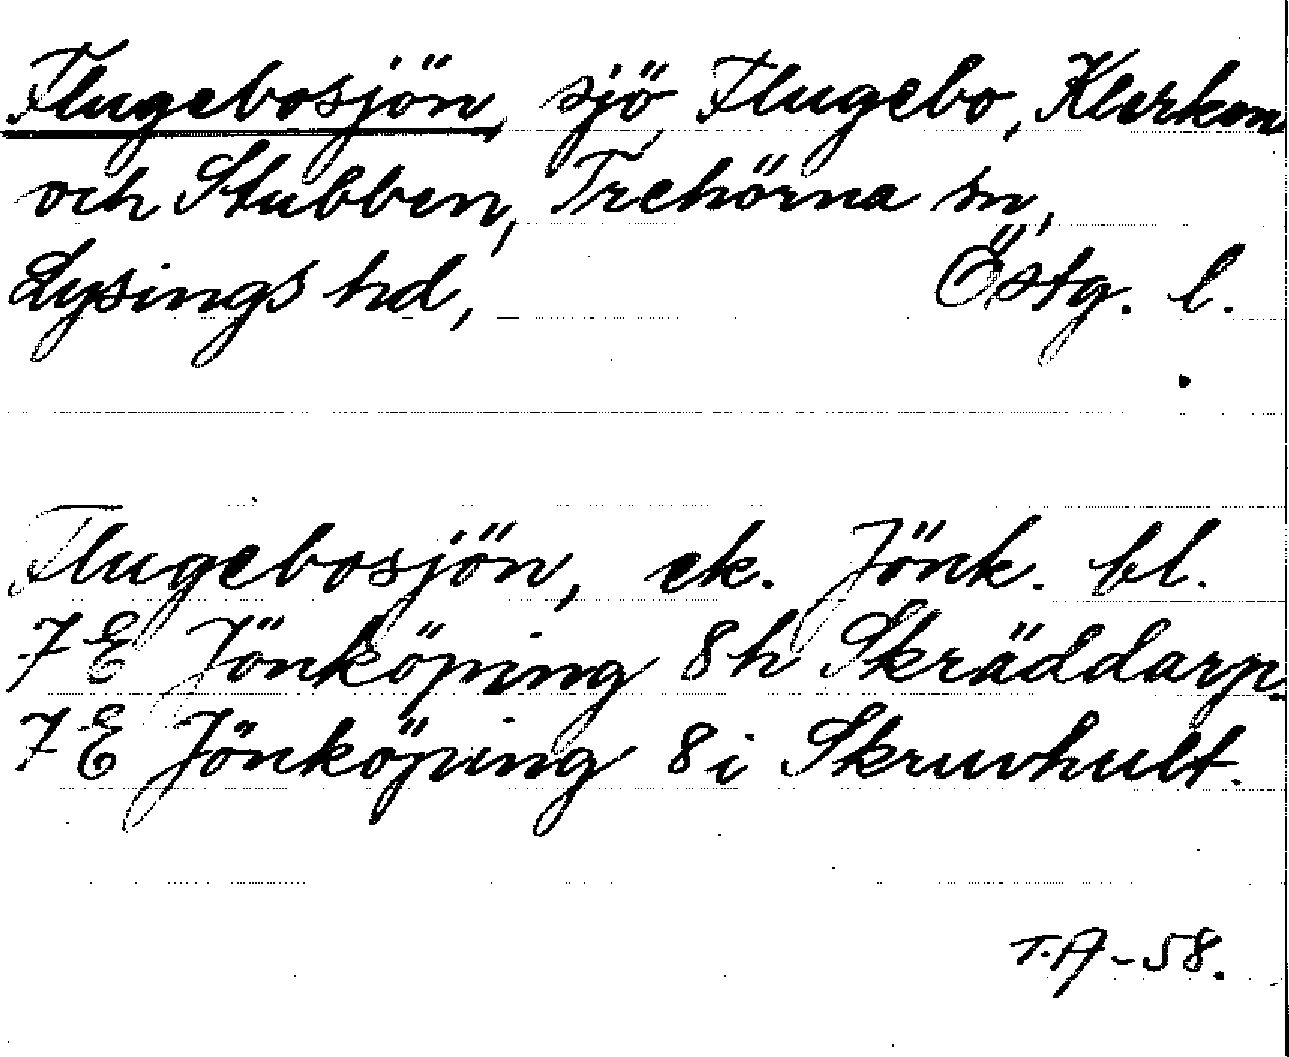 Flugebosjön, sjö, Flugebo, Klerkon
och Stubben, Trehörna sn,
Lysings hd, Östg. l.
Flugebosjön, ek. Jönk. bl.
7 E Jönköping 8h Skräddarp.
7 E Jönköping 8i Skruvhult.
T.A-58.